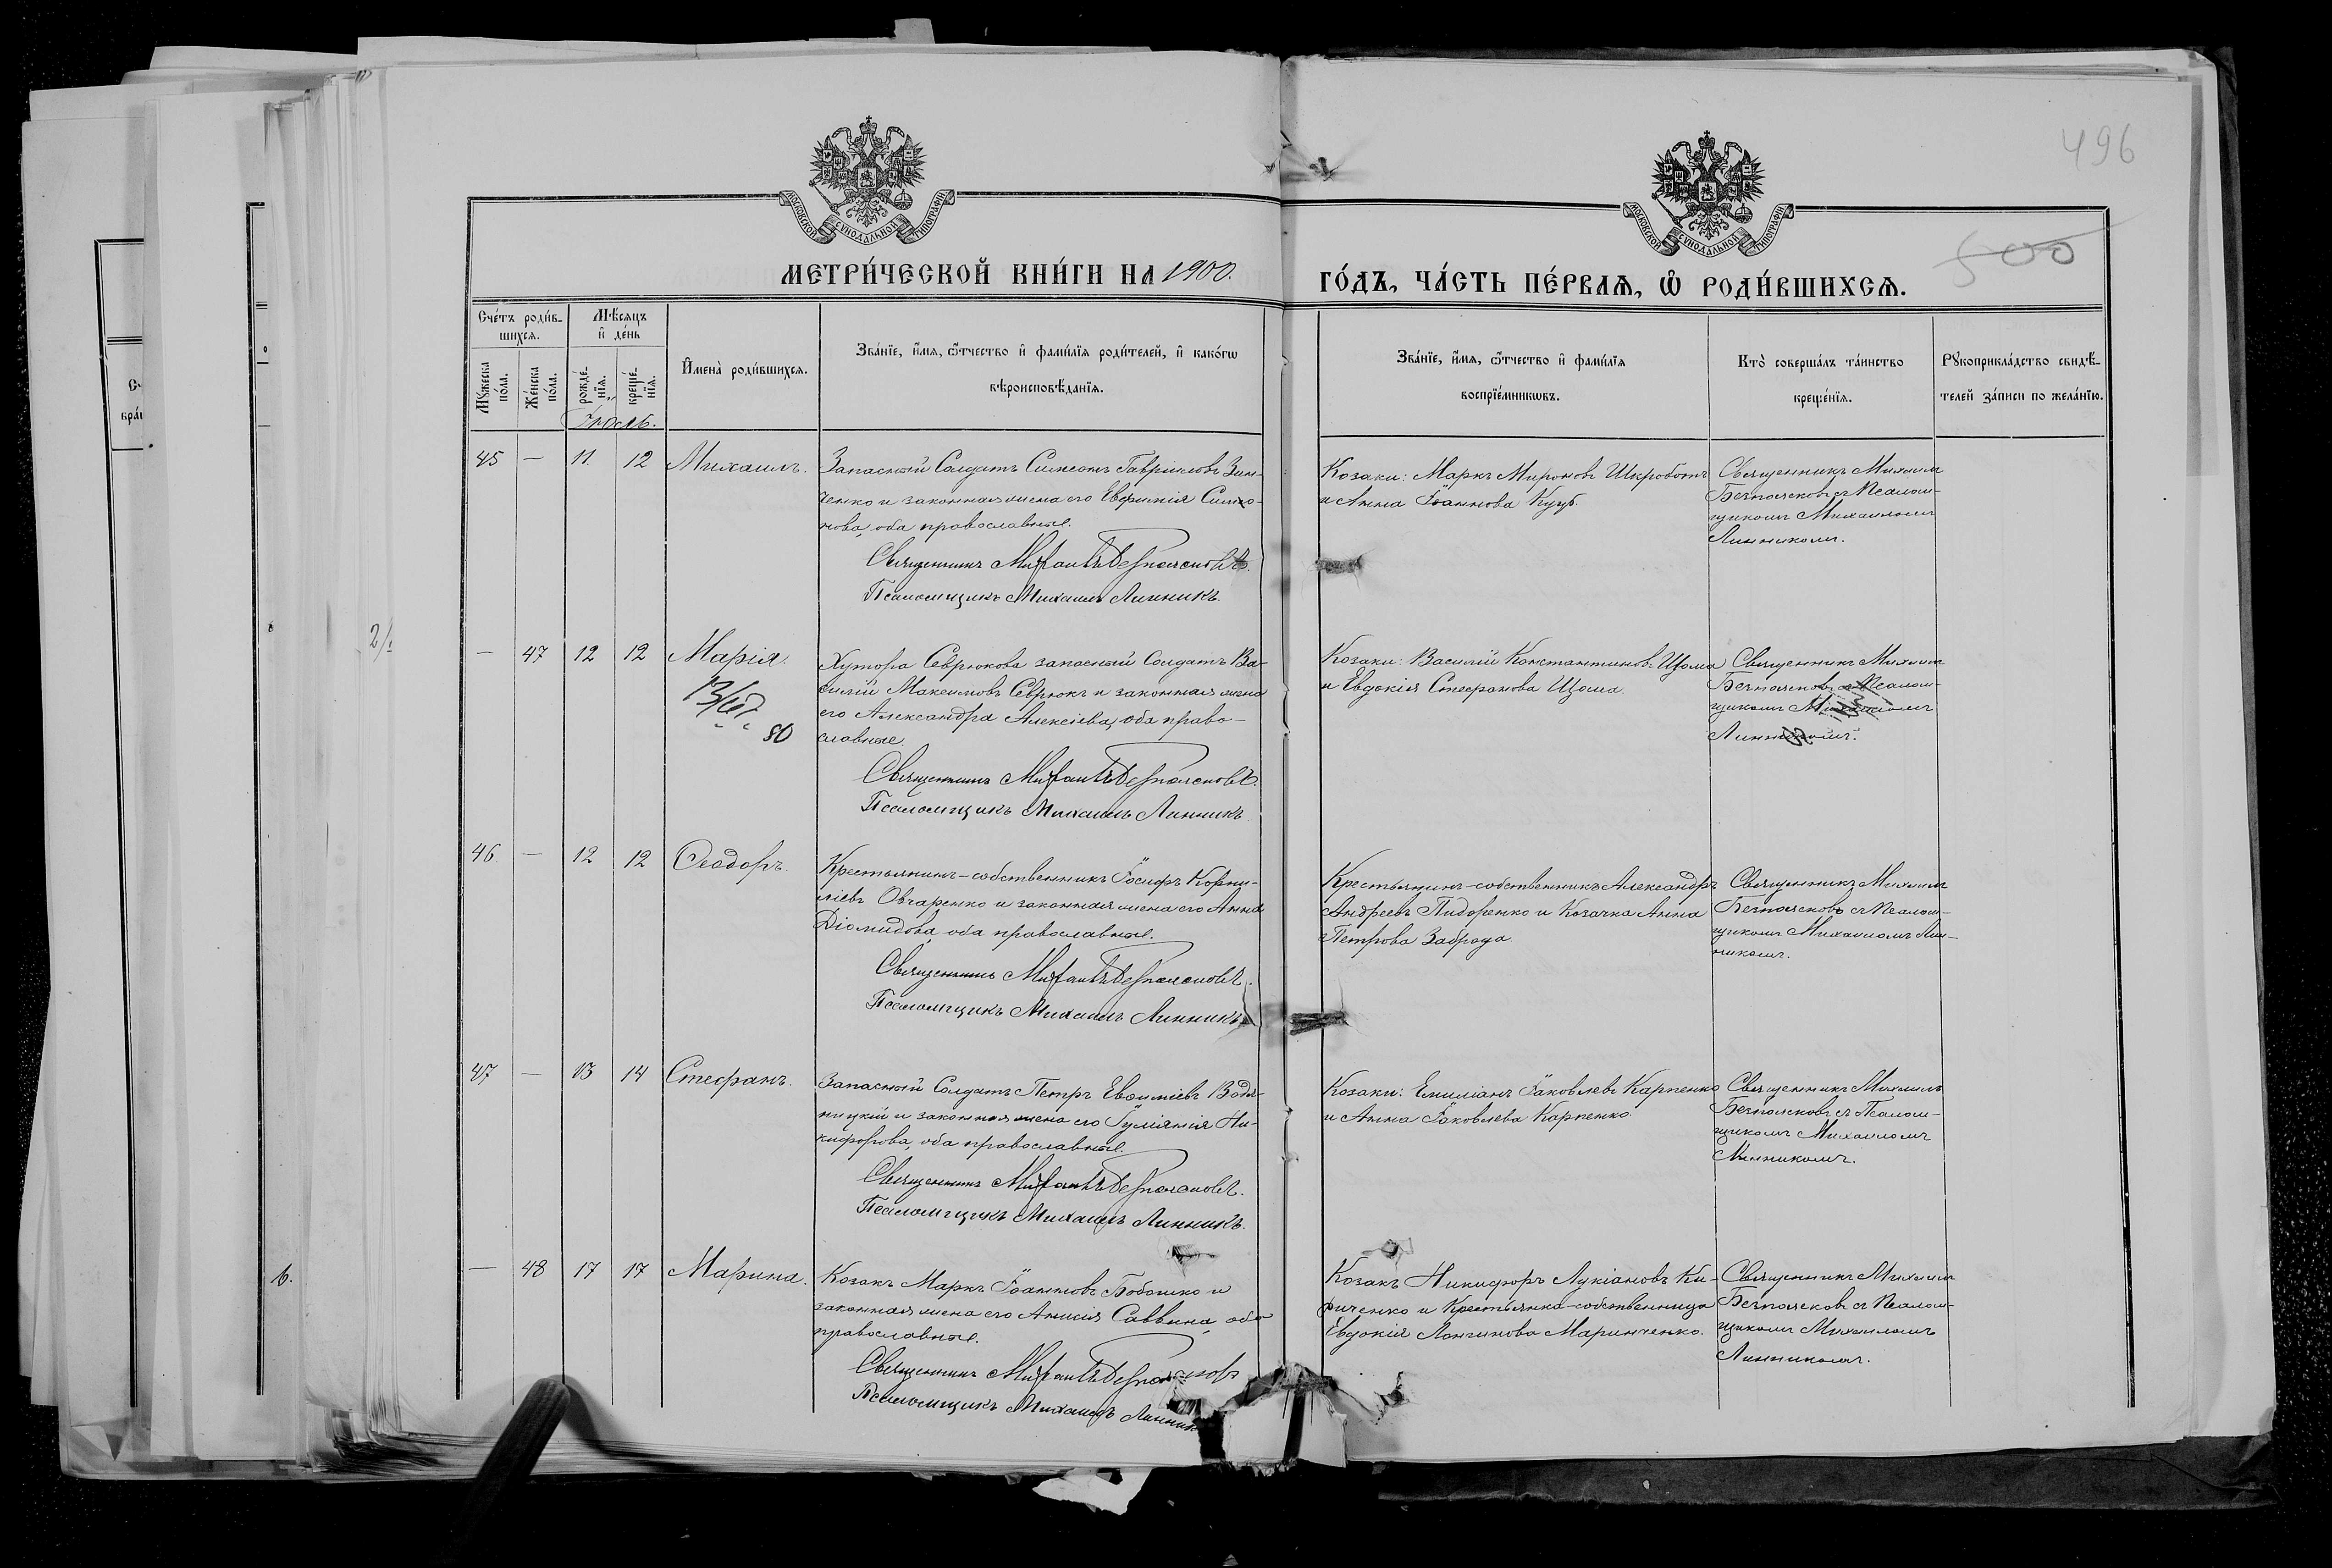 496
500
МОСКОВСКОЙ СѴНОДАЛЬНОЙ ТИПОГРАФІИ
МОСКОВСКОЙ СѴНОДАЛЬНОЙ ТИПОГРАФІИ
МЕТРИ́ЧЕСКОЙ КНИ́ГИ НА 1900.
ГО́ДЪ, ЧА́СТЬ ПЕ́РВАѦ, Ѡ҆ РОДИ́ВШИХСѦ.
Сче́тъ роди́в-
шихсѧ.
Мꙋ́жеска по́ла.
Же́нска по́ла.
Мѣ́сѧцъ
и҆ де́нь
рожде́-нїѧ.
креще́-нїѧ.
Іюль.
И҆мена̀ роди́вшихсѧ.
Зва́нїе, и҆́мѧ, ѻ҆́тчество и҆ фами́лїѧ роди́телей, и҆ како́гѡ
вѣроисповѣ́данїѧ.
Зва́нїе, и҆́мѧ, ѻ҆́тчество и҆ фами́лїѧ
воспрїе́мникѡвъ.
Кто̀ соверша́лъ та́инство
креще́нїѧ.
Рꙋкоприкла́дство свидѣ́-
телей за́писи по жела́нїю.
45 — 11. 12 Михаилъ.
Запасный Солдатъ Симеонъ Гавріиловъ Зин-
ченко и законная жена его Евфимія Симо-
нова, оба православные.
Священникъ Михаилъ Безпоясковъ.
Псаломщикъ Михаилъ Линникъ.
Козаки: Маркъ Мироновъ Шкроботъ
и Анна Іоаннова Куцъ.
Священникъ Михаилъ
Безпоясковъ съ Псалом-
щикомъ Михаиломъ
Линникомъ.
— 47 12 12 Марія.
80
Хутора Севрюкова запасный Солдатъ Ва-
силій Максимовъ Севрюкъ и законная жена
его Александра Алексіева, оба право-
славные.
Священникъ Михаилъ Безпоясковъ.
Псаломщикъ Михаилъ Линникъ.
Козаки: Василій Константиновъ Цѣома
и Евдокія Стефанова Цѣома.
Священникъ Михаилъ
Безпоясковъ съ Псалом-
щикомъ Михаиломъ
Линникомъ.
46. — 12 12 Ѳеодоръ.
Крестьянинъ-собственникъ Іосифъ Корни-
ліевъ Овчаренко и законная жена его Анна
Діомидова, оба православные.
Священникъ Михаилъ Безпоясковъ.
Псаломщикъ Михаилъ Линникъ.
Крестьянинъ-собственникъ Александръ
Андреевъ Пидоренко и Козачка Анна
Петрова Заброда.
Священникъ Михаилъ
Безпоясковъ съ Псалом-
щикомъ Михаиломъ Лин-
никомъ.
47 — 13 14 Стефанъ.
Запасный Солдатъ Петръ Евѳиміевъ Водя-
ницкій и законная жена его Іуліанія Ни-
кифорова, оба православные.
Священникъ Михаилъ Безпоясковъ.
Псаломщикъ Михаилъ Линникъ.
Козаки: Емиліанъ Іаковлевъ Карпенко
и Анна Іаковлева Карпенко
Священникъ Михаилъ
Безпоясковъ съ Псалом-
щикомъ Михаиломъ
Линникомъ.
— 48 17 17 Марина.
Козакъ Маркъ Іоанновъ Бобошко и
законная жена его Анисія Саввина, оба
православные.
Священникъ Михаилъ Безпоясковъ
Псаломщикъ Михаилъ Линникъ.
Козакъ Никифоръ Лукіановъ Ки-
риченко и Крестьянка-собственница
Евдокія Лонгинова Маринченко.
Священникъ Михаилъ
Безпоясковъ съ Псалом-
щикомъ Михаиломъ
Линникомъ.